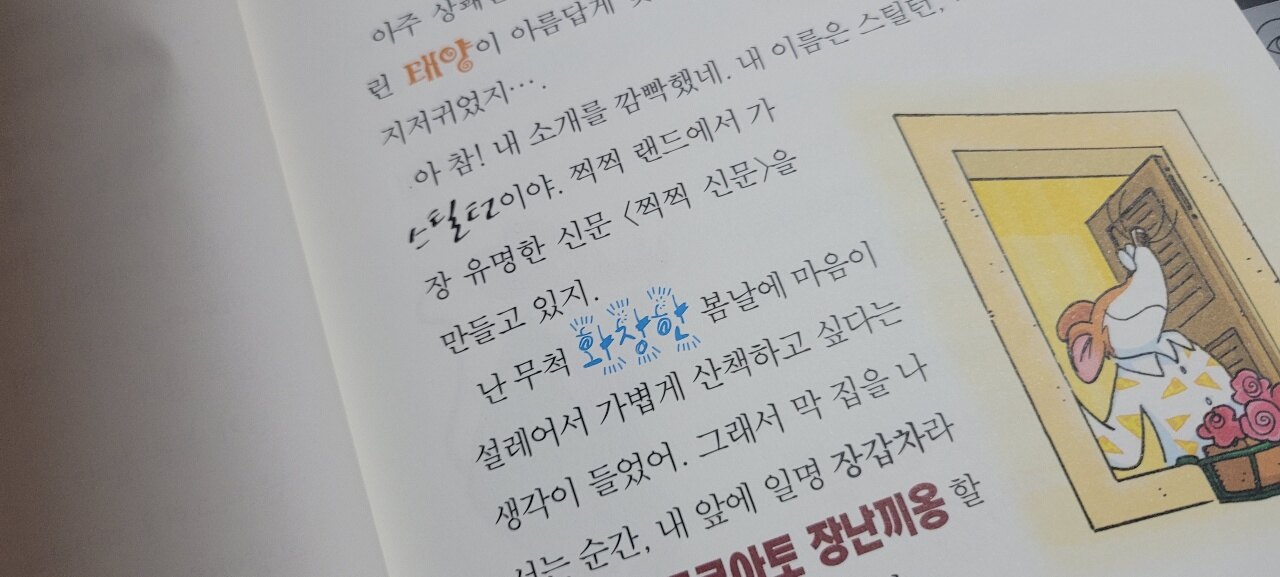 아주 상쾌
린 태양이 아름답게
지저귀었지….
아 참! 내 소개를 깜빡했네. 내 이름은 스틸턴,
스틸턴이야. 찍찍 랜드에서 가
장 유명한 신문 〈찍찍 신문〉을
만들고 있지.
난 무척 화창한 봄날에 마음이
설레어서 가볍게 산책하고 싶다는
생각이 들었어. 그래서 막 집을 나
서는 순간, 내 앞에 일명 장갑차라
장난끼옹 할